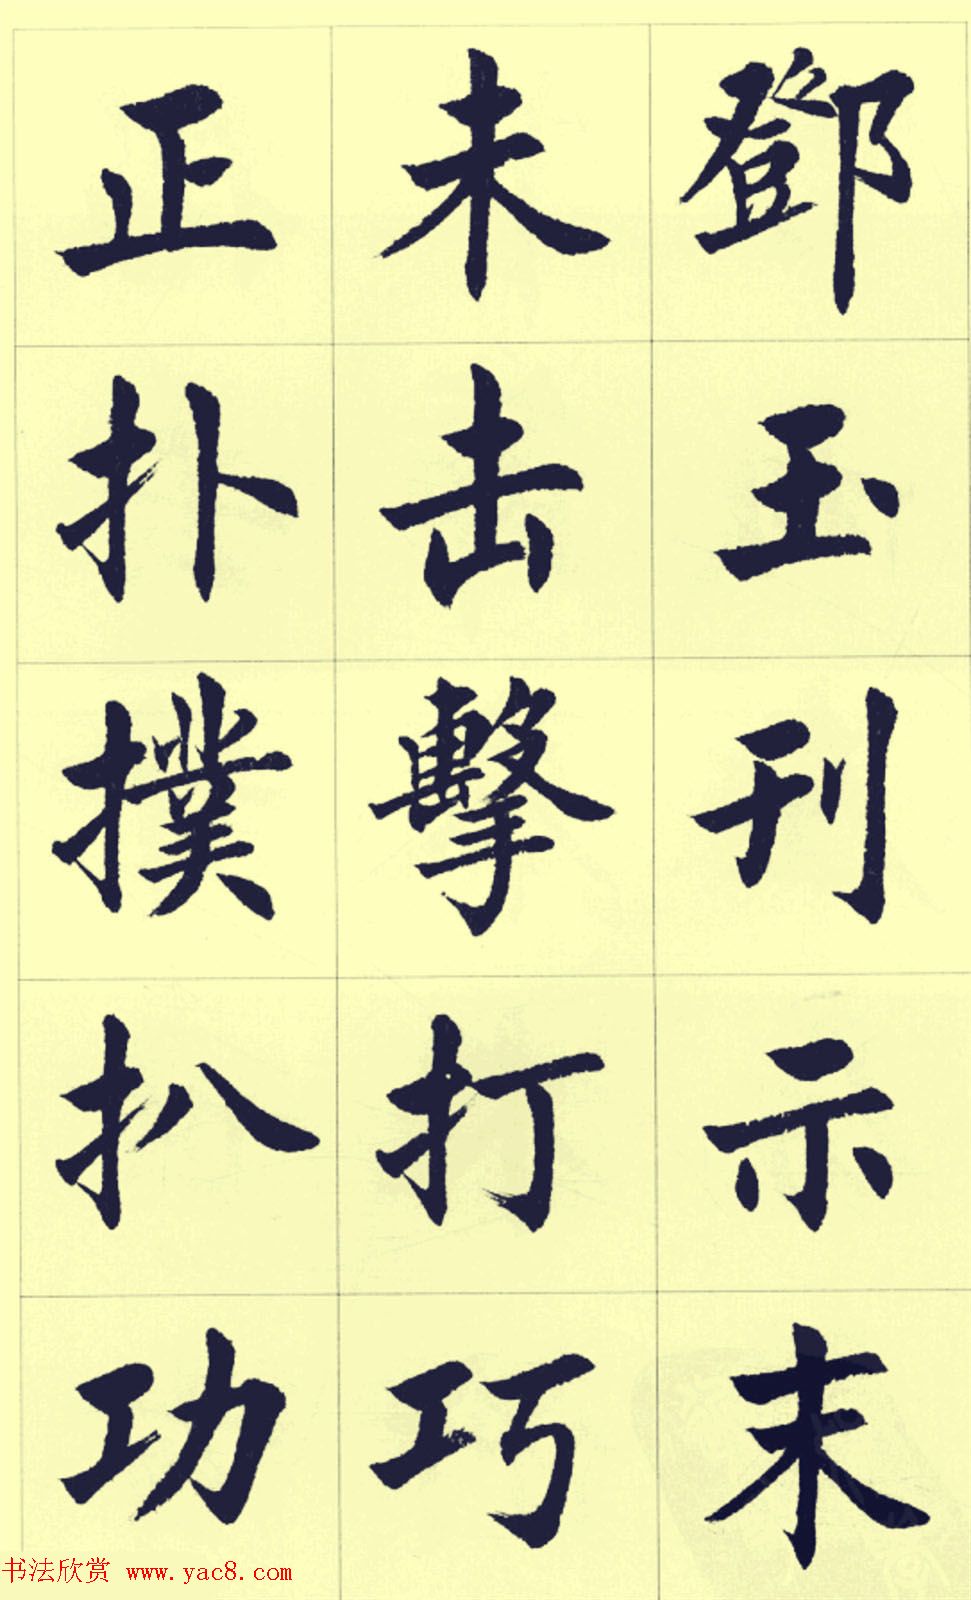 鄧玉刊示末
未击擊打巧
正扑撲扒功
书法欣赏 www.yac8.com